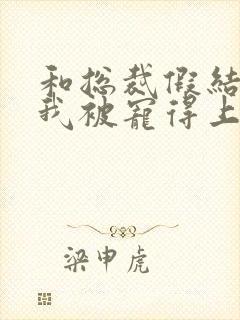 和总裁假结
我被宠得上
梁申虎